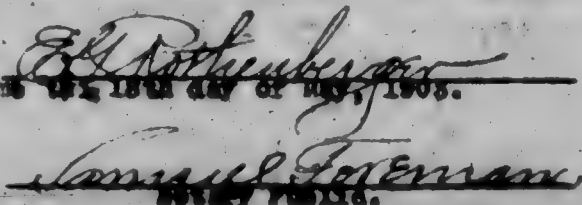 E G Rothenberger
me this 18th day of May, 1903.
Samuel Foreman
Notary Public.